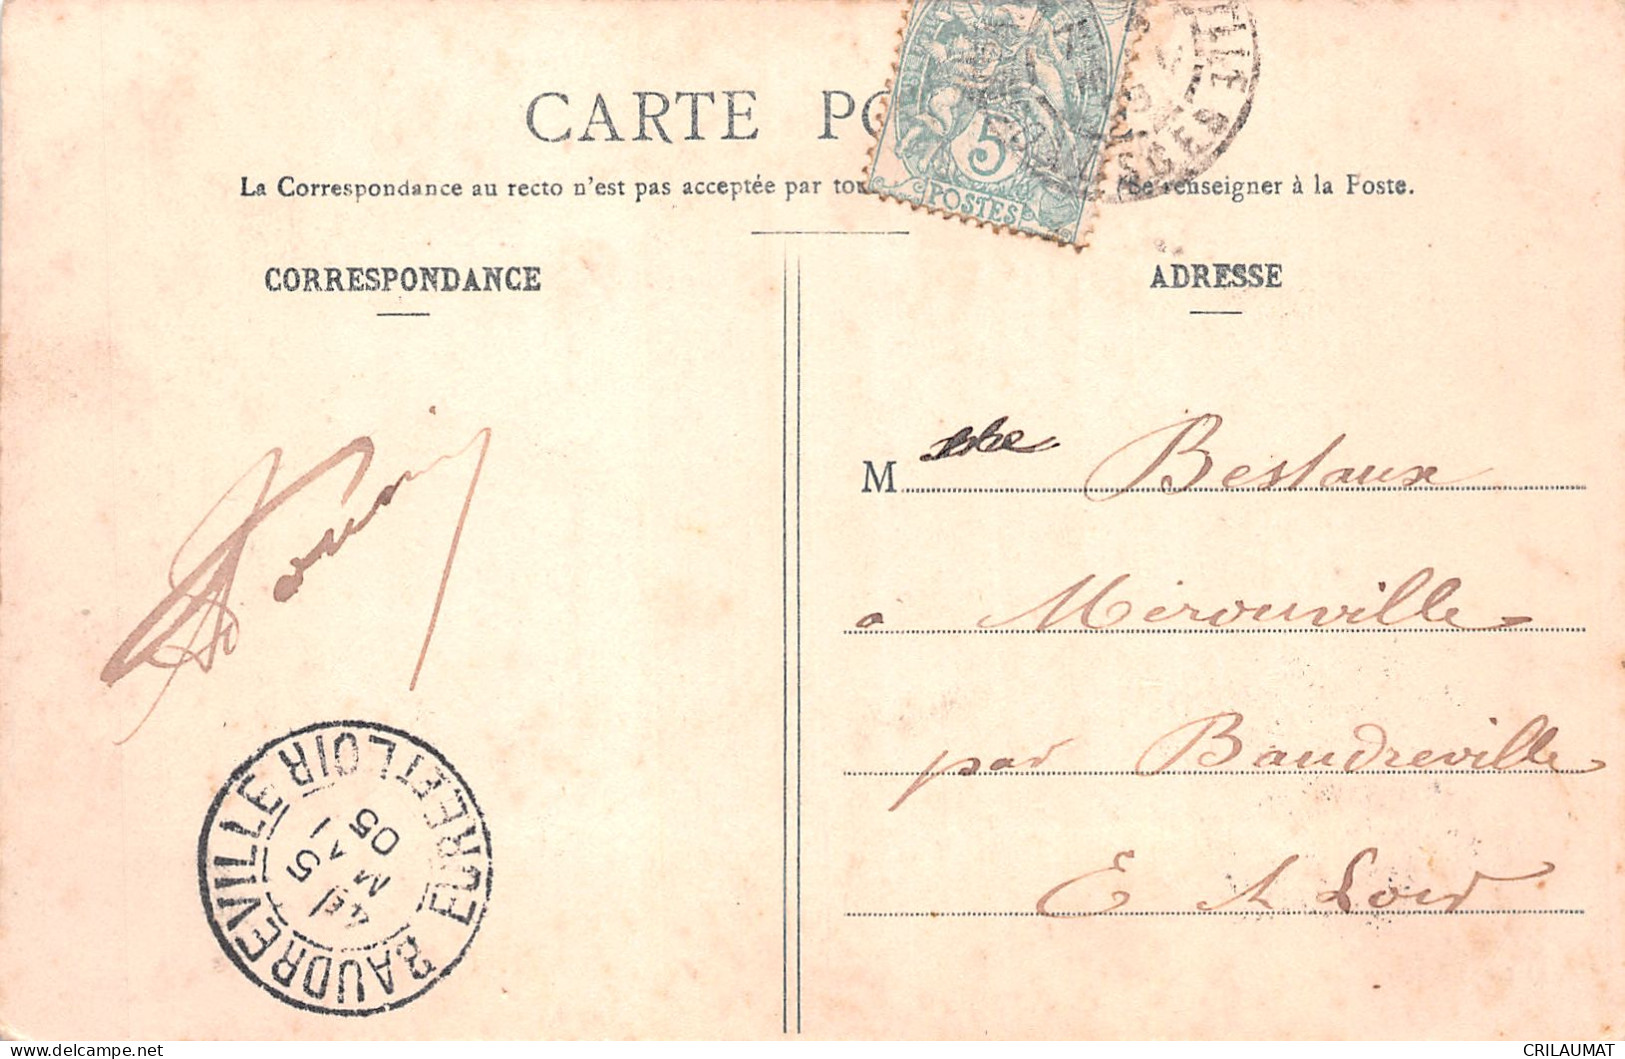 CARTE PO
La Correspondance au recto n'est pas acceptée par tou
(Se renseigner à la Poste.
5
POSTES
CORRESPONDANCE
ADRESSE
M Bestaux
a Mérouville
par Baudreville
E & Loir
BAUDREVILLE EURE ET LOIR
4E 5
MAI
05
CRILAUMAT